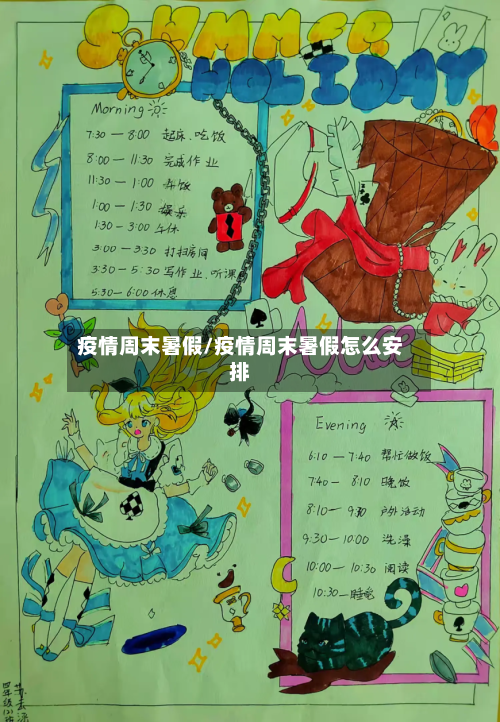 SUMMER
HOLIDAY
Morning
7:30 — 8:00 起床、吃饭
8:00 — 11:30 完成作业
11:30 — 1:00 午饭
1:00 — 1:30 娱乐
1:30 — 3:00 午休
3:00 — 3:30 打扫房间
3:30 — 5:30 写作业、听课
5:30 — 6:00 休息
疫情周末暑假/疫情周末暑假怎么安
排
Alice
Evening
6:10 — 7:40 帮忙做饭
7:40 — 8:10 晚饭
8:10 — 9:30 户外活动
9:30 — 10:00 洗澡
10:00 — 10:30 阅读
10:30 — 睡觉